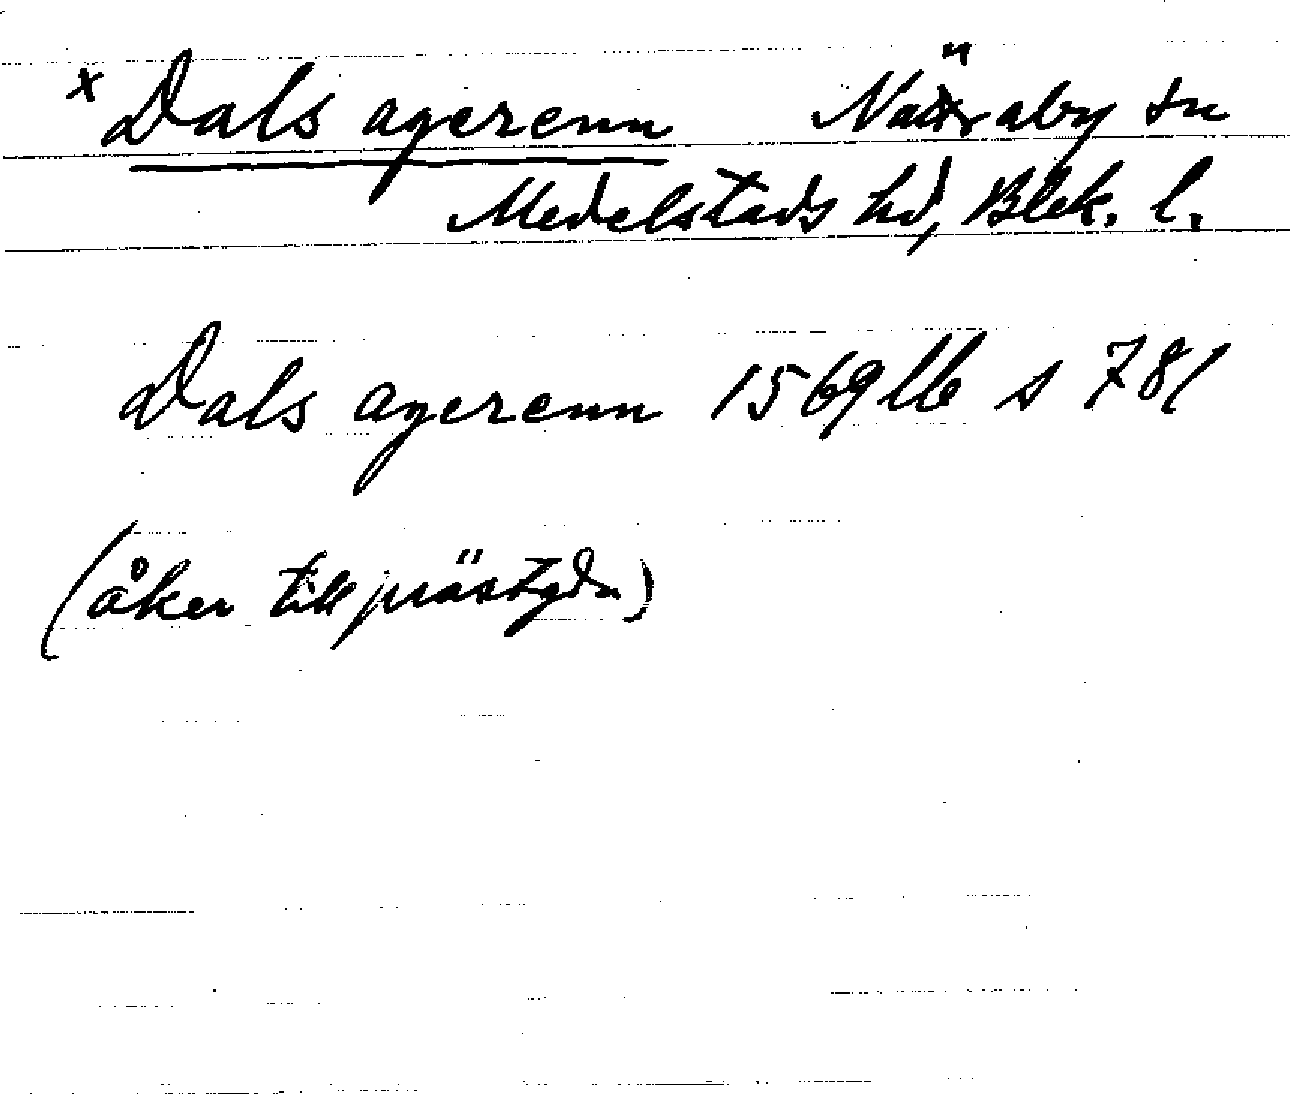 x Dals agerenn Nättraby sn
Medelstads hd, Blek. l.
Dals agerenn 1569 lb s 781
(åker till prästgdn)